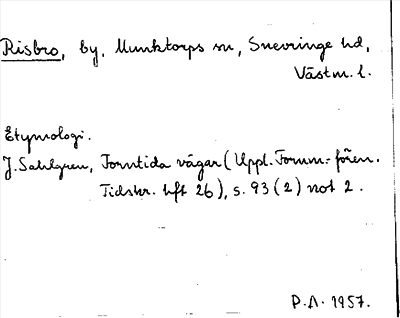 Risbro, by, Munktorps sn, Snevringe hd,
Västm. l.
Etymologi.
J. Sahlgren, Forntida vägar (Uppl. Fornm.-fören.
Tidskr. hft 26), s. 93 (2) not 2.
P.A. 1957.